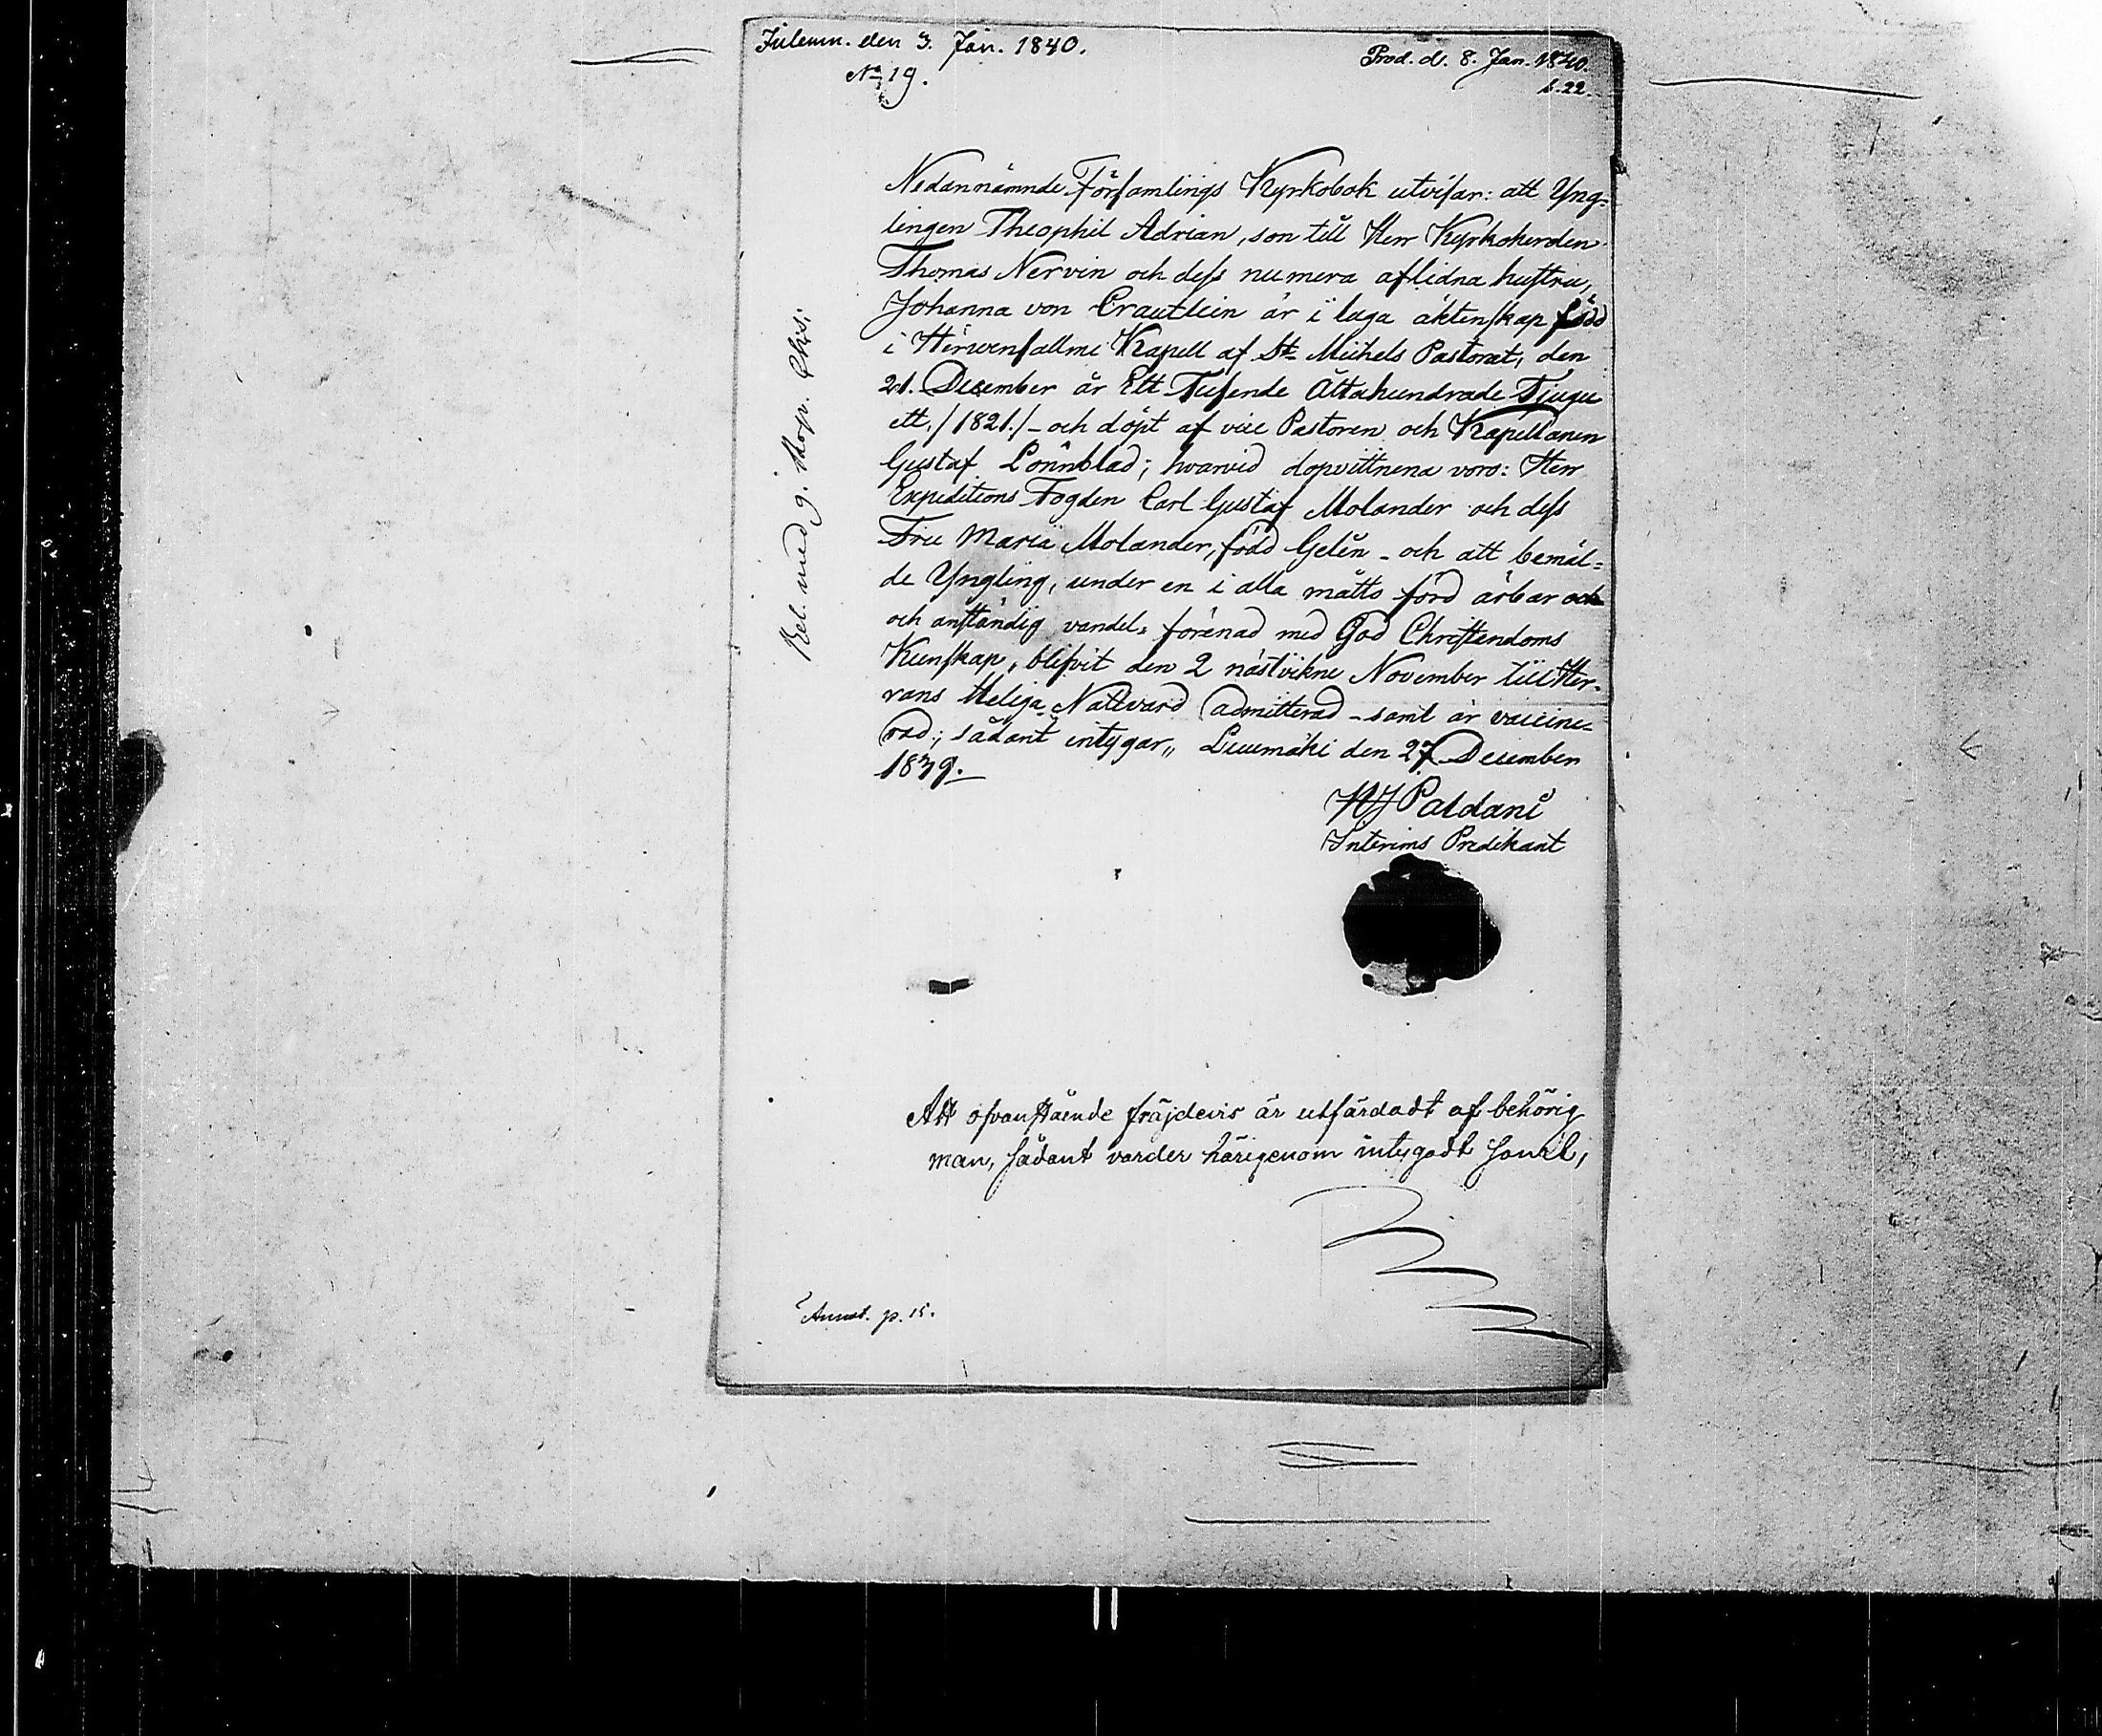 Inlemn. den 3. Jan. 1840.
No 19.
Prod. d. 8. Jan. 1840.
§. 22.
Nedannämnde Församlings Kyrkobok utvisar: att Yng-
lingen Theophil Adrian, son till Herr Kyrkoherden
Thomas Nervin och dess numera aflidna hustru,
Johanna von Crautlein är i laga äktenskap född
i Hirvensallmi Kapell af St. Michels Pastorat, den
21. December år Ett Tusende Åttahundrade Tjugu
ett. /1821./ - och döpt af vice Pastoren och Kapellanen
Gustaf Lönnblad; hvarvid dopvittnena voro: Herr
Expeditions Fogden Carl Gustaf Molander och dess
Fru Maria Molander, född Gelén - och att bemäl-
de Yngling, under en i alla måtto förd ärbar och
och anständig vandel, förenad med God Christendoms
Kunskap, blifvit den 2 nästvikne November till Her-
rans Heliga Nattvard admitterad - samt är vaccine-
rad; sådant intygar,, Luumäki den 27 December
1839.
HJ Paldani
Interims Predikant
Att ofvanstående fräjdevis är utfärdadt af behörig
man, sådant varder härigenom intygadt
Annot. p. 15.
Bet. med g.